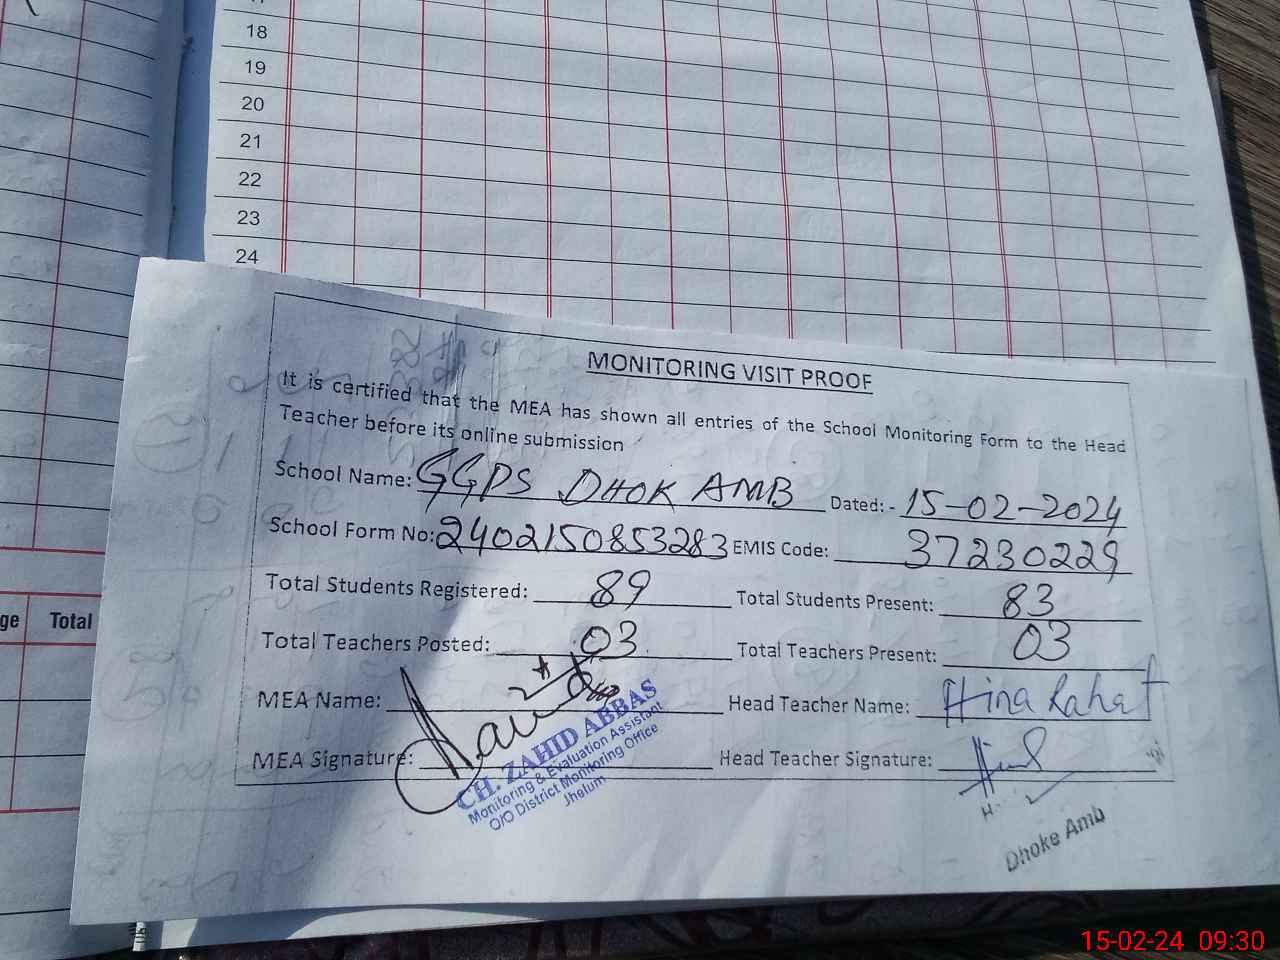 18
19
20
21
22
23
24
ge Total
MONITORING VISIT PROOF
It is certified that the MEA has shown all entries of the School Monitoring Form to the Head
Teacher before its online submission
School Name: GGPS DHOK AMB Dated: - 15-02-2024
School Form No: 2402150853283 EMIS Code: 37230229
Total Students Registered: 89 Total Students Present: 83
Total Teachers Posted: 03 Total Teachers Present: 03
MEA Name: Head Teacher Name: Hina Rahat
MEA Signature: Head Teacher Signature:
CH. ZAHID ABBAS
Monitoring & Evaluation Assistant
O/O District Monitoring Office
Jhelum
Dhoke Amb
15-02-24 09:30